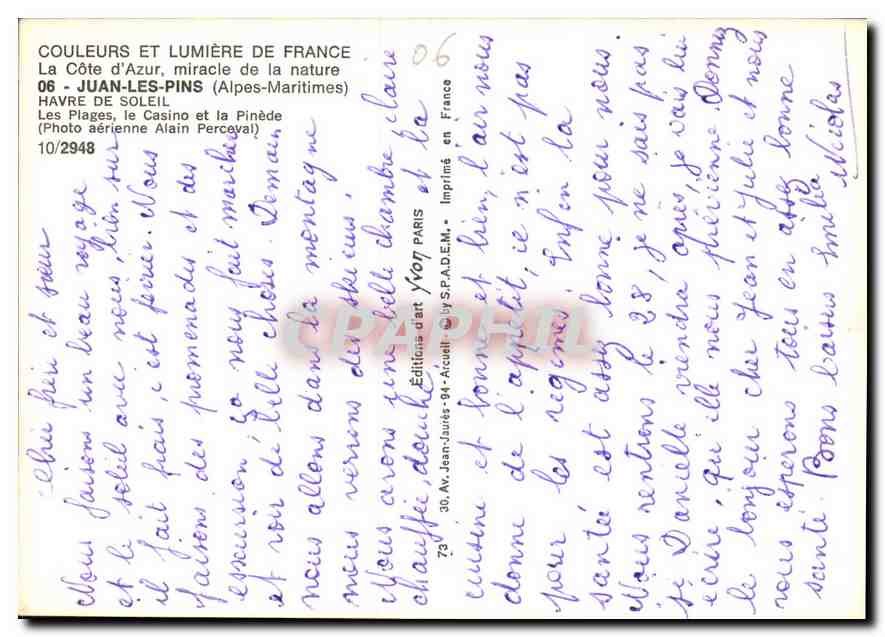 COULEURS ET LUMIÈRE DE FRANCE
La Côte d'Azur, miracle de la nature
06 - JUAN-LES-PINS (Alpes-Maritimes)
HAVRE DE SOLEIL
Les Plages, le Casino et la Pinède
(Photo aérienne Alain Perceval)
10/2948
06
Cher frère et sœur
Nous faisons un beau voyage
et le soleil avec nous, bien sur
il fait frais, c'est fevrier. Nous
faisons des promenades et des
esscursion, ça nous fait marcher
et voir de belle choses. Demain
nous allons dans la montagne
nous verrons des skieurs.
Nous avons une belle chambre claire
chauffée, douche, et la
cuisine et bonne et bien, l'air nous
donne de l'appétit, ce n'est pas
pour les regimes. Enfin la
santée est assez bonne pour nous.
Nous rentrons le 28, je ne sais pas
si Danielle viendra, après, je vais lui
ecrire, qu'elle nous prévienne. Donnez
le bonjour cher Jean et Julie et nous
vous esperons tous en assez bonne
santé. Bons baisers Emilia
Nicolas
73
30, Av. Jean-Jaurès - 94 - Arcueil - © by S.P.A.D.E.M. • Imprimé en France
Éditions d'art Yvon PARIS
CPAPHIL